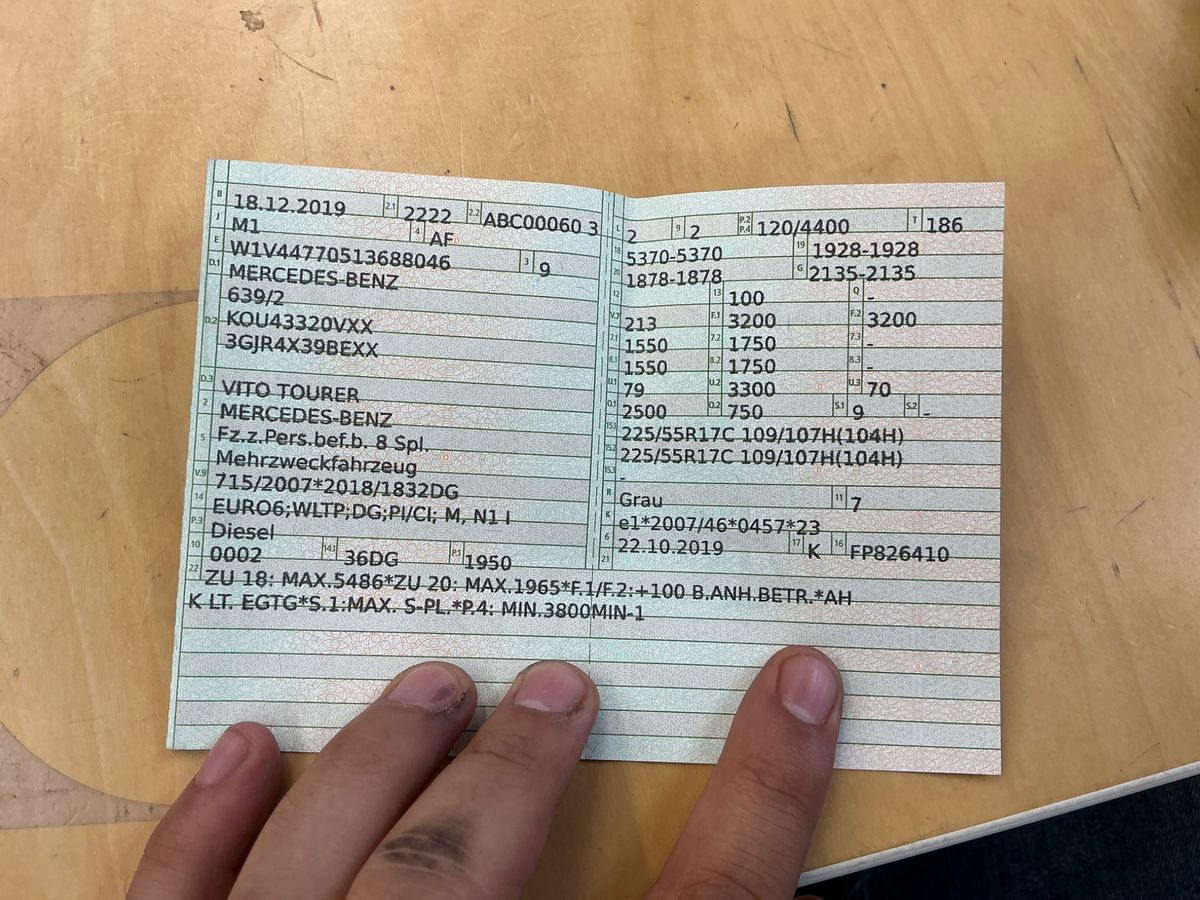 B 18.12.2019 2.1 2222 2.2 ABC00060 3
J M1 4 AF
E W1V44770513688046 3 9
D.1 MERCEDES-BENZ
639/2
D.2 KOU43320VXX
3GJR4X39BEXX
D.3 VITO TOURER
2 MERCEDES-BENZ
5 Fz.z.Pers.bef.b. 8 Spl.
Mehrzweckfahrzeug
V.9 715/2007*2018/1832DG
14 EURO6;WLTP;DG;PI/CI; M, N1 I
P.3 Diesel
10 0002 14.1 36DG P.1 1950
L 2 9 2 P.2 P.4 120/4400 T 186
18 5370-5370 19 1928-1928
20 1878-1878 G 2135-2135
12 13 100 Q -
V.7 213 F.1 3200 F.2 3200
7.1 1550 7.2 1750 7.3 -
8.1 1550 8.2 1750 8.3 -
U.1 79 U.2 3300 U.3 70
O.1 2500 O.2 750 S.1 9 S.2 -
15.1 225/55R17C 109/107H(104H)
15.2 225/55R17C 109/107H(104H)
15.3 -
R Grau 11 7
K e1*2007/46*0457*23
6 22.10.2019 17 K 16 FP826410
21
22 ZU 18: MAX.5486*ZU 20: MAX.1965*F.1/F.2:+100 B.ANH.BETR.*AH
K LT. EGTG*S.1:MAX. S-PL.*P.4: MIN.3800MIN-1